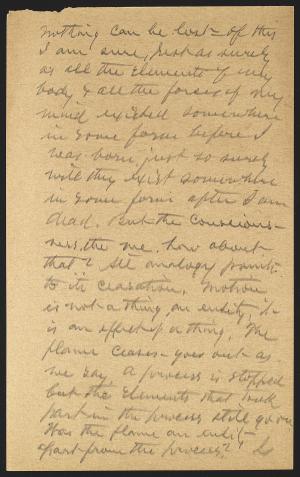 nothing can be lost - of this
I am sure, just as surely
as all the elements of my
body & all the forces of my
mind existed somewhere
in some form before I
was born, just so surely
will they exist somewhere
in some form after I am
dead. But the conscious-
ness, the me, how about
that? All analogy points
to its cessation. Motion
is not a thing, an entity; it
is an effect of a thing. The
flame ceases - goes out as
we say. A process is stopped
but the elements that took
part in the process still go on
Was the flame an entity
apart from the process?